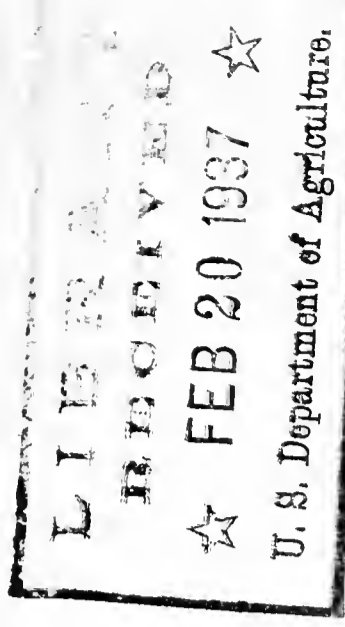 LIBRARY
RECEIVED
☆ FEB 20 1937 ☆
U. S. Department of Agriculture.